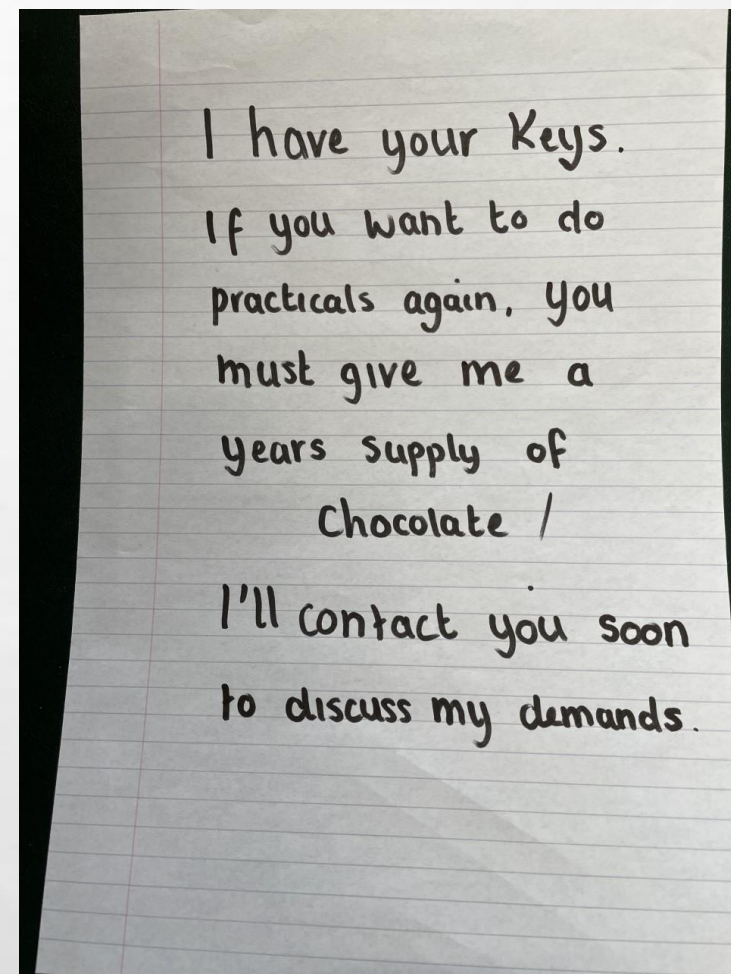 I have your Keys.
If you want to do
practicals again, you
must give me a
years supply of
Chocolate /
I'll contact you soon
to discuss my demands.